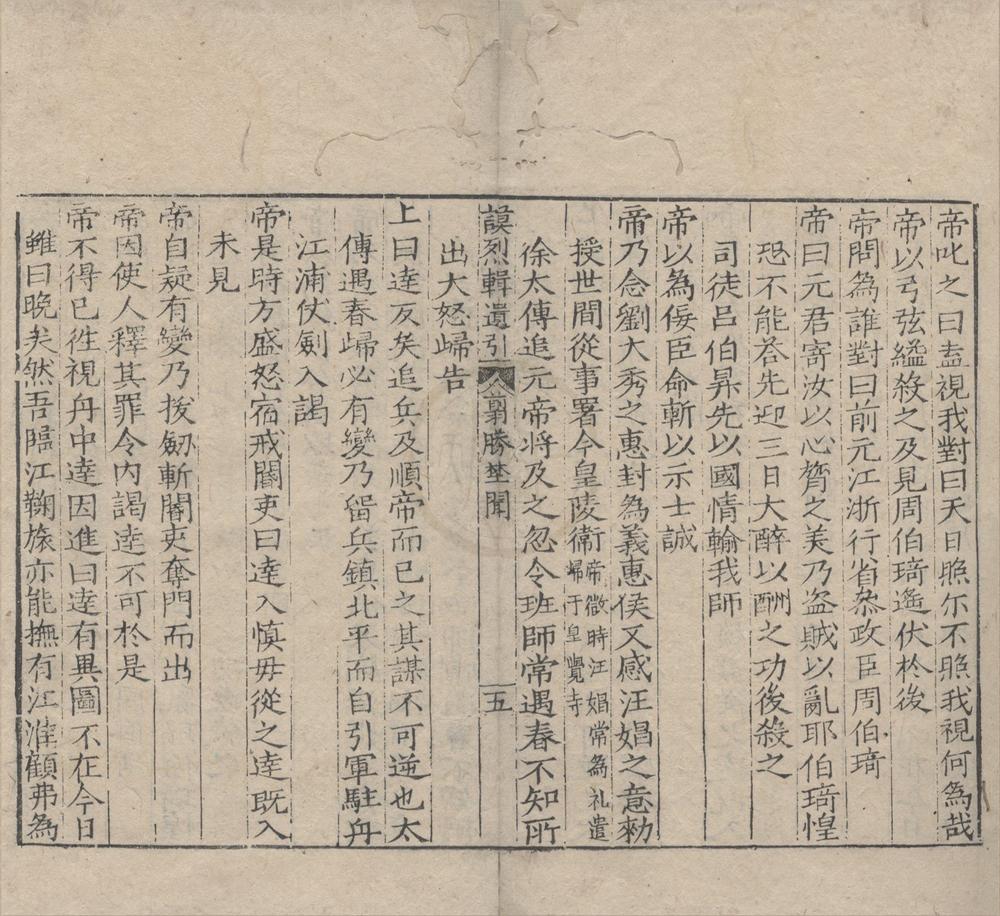 帝叱之曰盍視我對曰天日照尔不照我視何為哉
帝以弓弦縊殺之及見周伯琦遙伏於後
帝問為誰對曰前元江浙行省叅政臣周伯琦
帝曰元君寄汝以心膂之美乃盗賊以亂耶伯琦惶
恐不能荅先迎三日大醉以酬之功後殺之
司徒呂伯昇先以國情輸我師
帝以為佞臣命斬以示士誠
帝乃念劉大秀之惠封為義惠侯又感汪娼之意勑
授世間從事署令皇陵衛帝微時汪娼常為礼遣歸于皇覺寺
徐太傳追元帝將及之忽令班師常遇春不知所
謨烈輯遺引 翦勝埜聞 五
出大怒歸告
上曰逹反矣追兵及順帝而已之其謀不可逆也太
傳遇春歸必有變乃留兵鎮北平而自引軍駐舟
江浦仗劍入謁
帝是時方盛怒宿戒閽吏曰逹入慎毋從之逹既入
未見
帝自疑有變乃拔劒斬閽吏奪門而出
帝因使人釋其罪令內謁逹不可於是
帝不得已徃視舟中逹因進曰逹有異圖不在今日
雖曰晚矣然吾臨江鞠旅亦能撫有江淮顧弗為